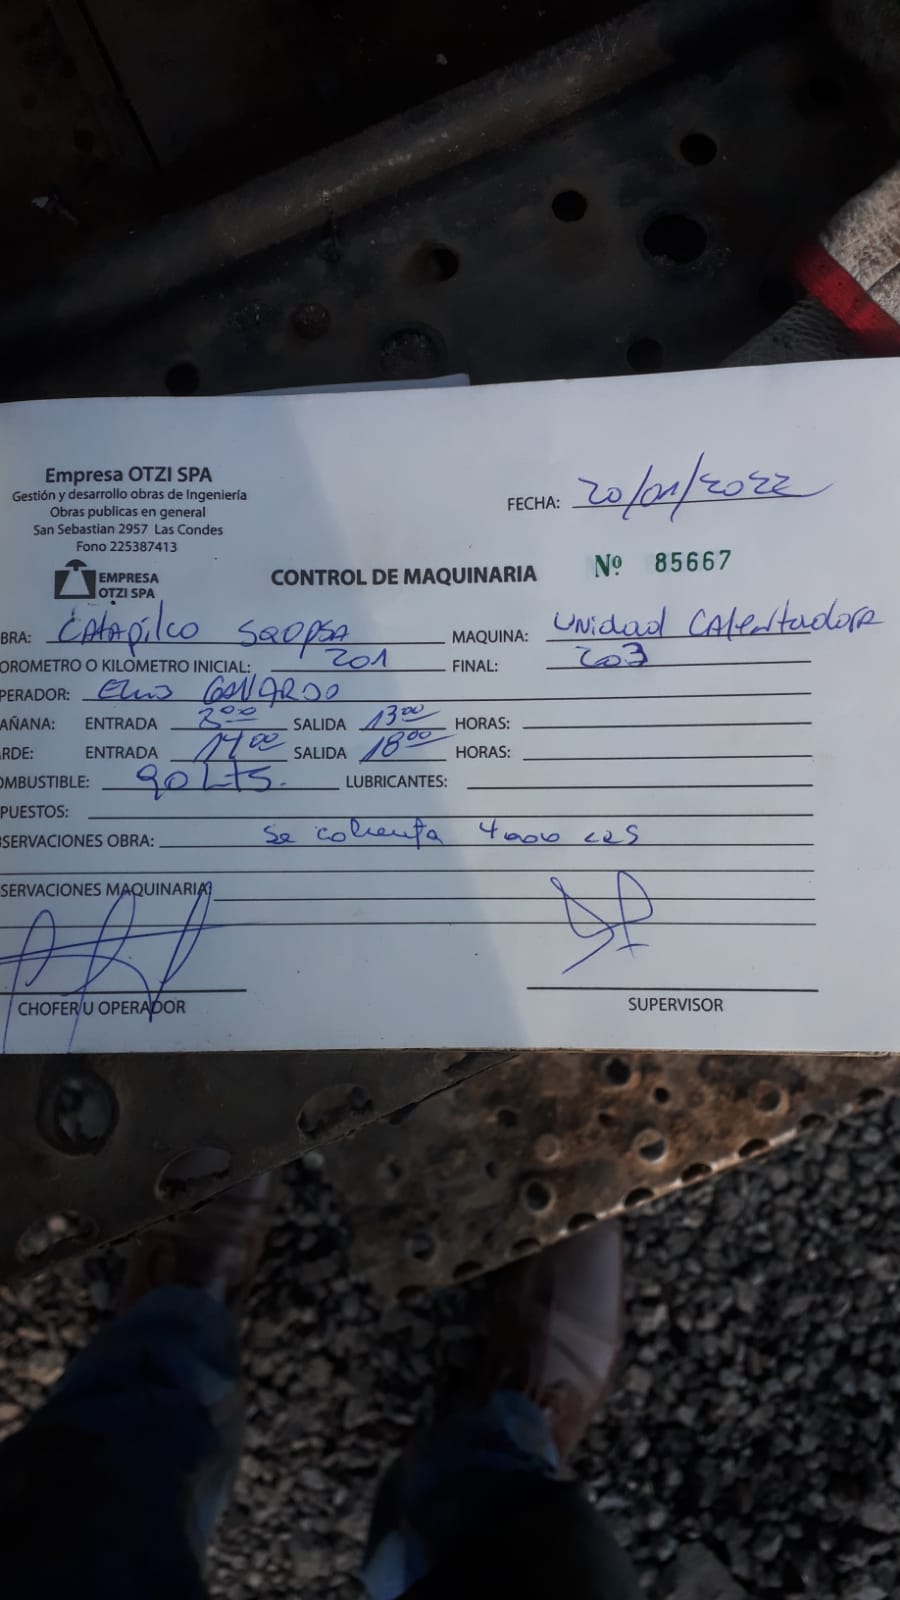 Empresa OTZI SPA
Gestión y desarrollo obras de Ingeniería
Obras publicas en general
San Sebastian 2957 Las Condes
Fono 225387413
EMPRESA
OTZI SPA
FECHA: 20/01/2022
CONTROL DE MAQUINARIA Nº 85667
BRA: Catapilco MAQUINA: Unidad Calentadora
OROMETRO O KILOMETRO INICIAL: 201 FINAL: 203
PERADOR:
AÑANA: ENTRADA 8:00 SALIDA 13:00 HORAS:
RDE: ENTRADA 14:00 SALIDA 18:00 HORAS:
OMBUSTIBLE: 90 LTS. LUBRICANTES:
PUESTOS:
SERVACIONES OBRA: Se calienta 4000
SERVACIONES MAQUINARIA
CHOFER U OPERADOR SUPERVISOR